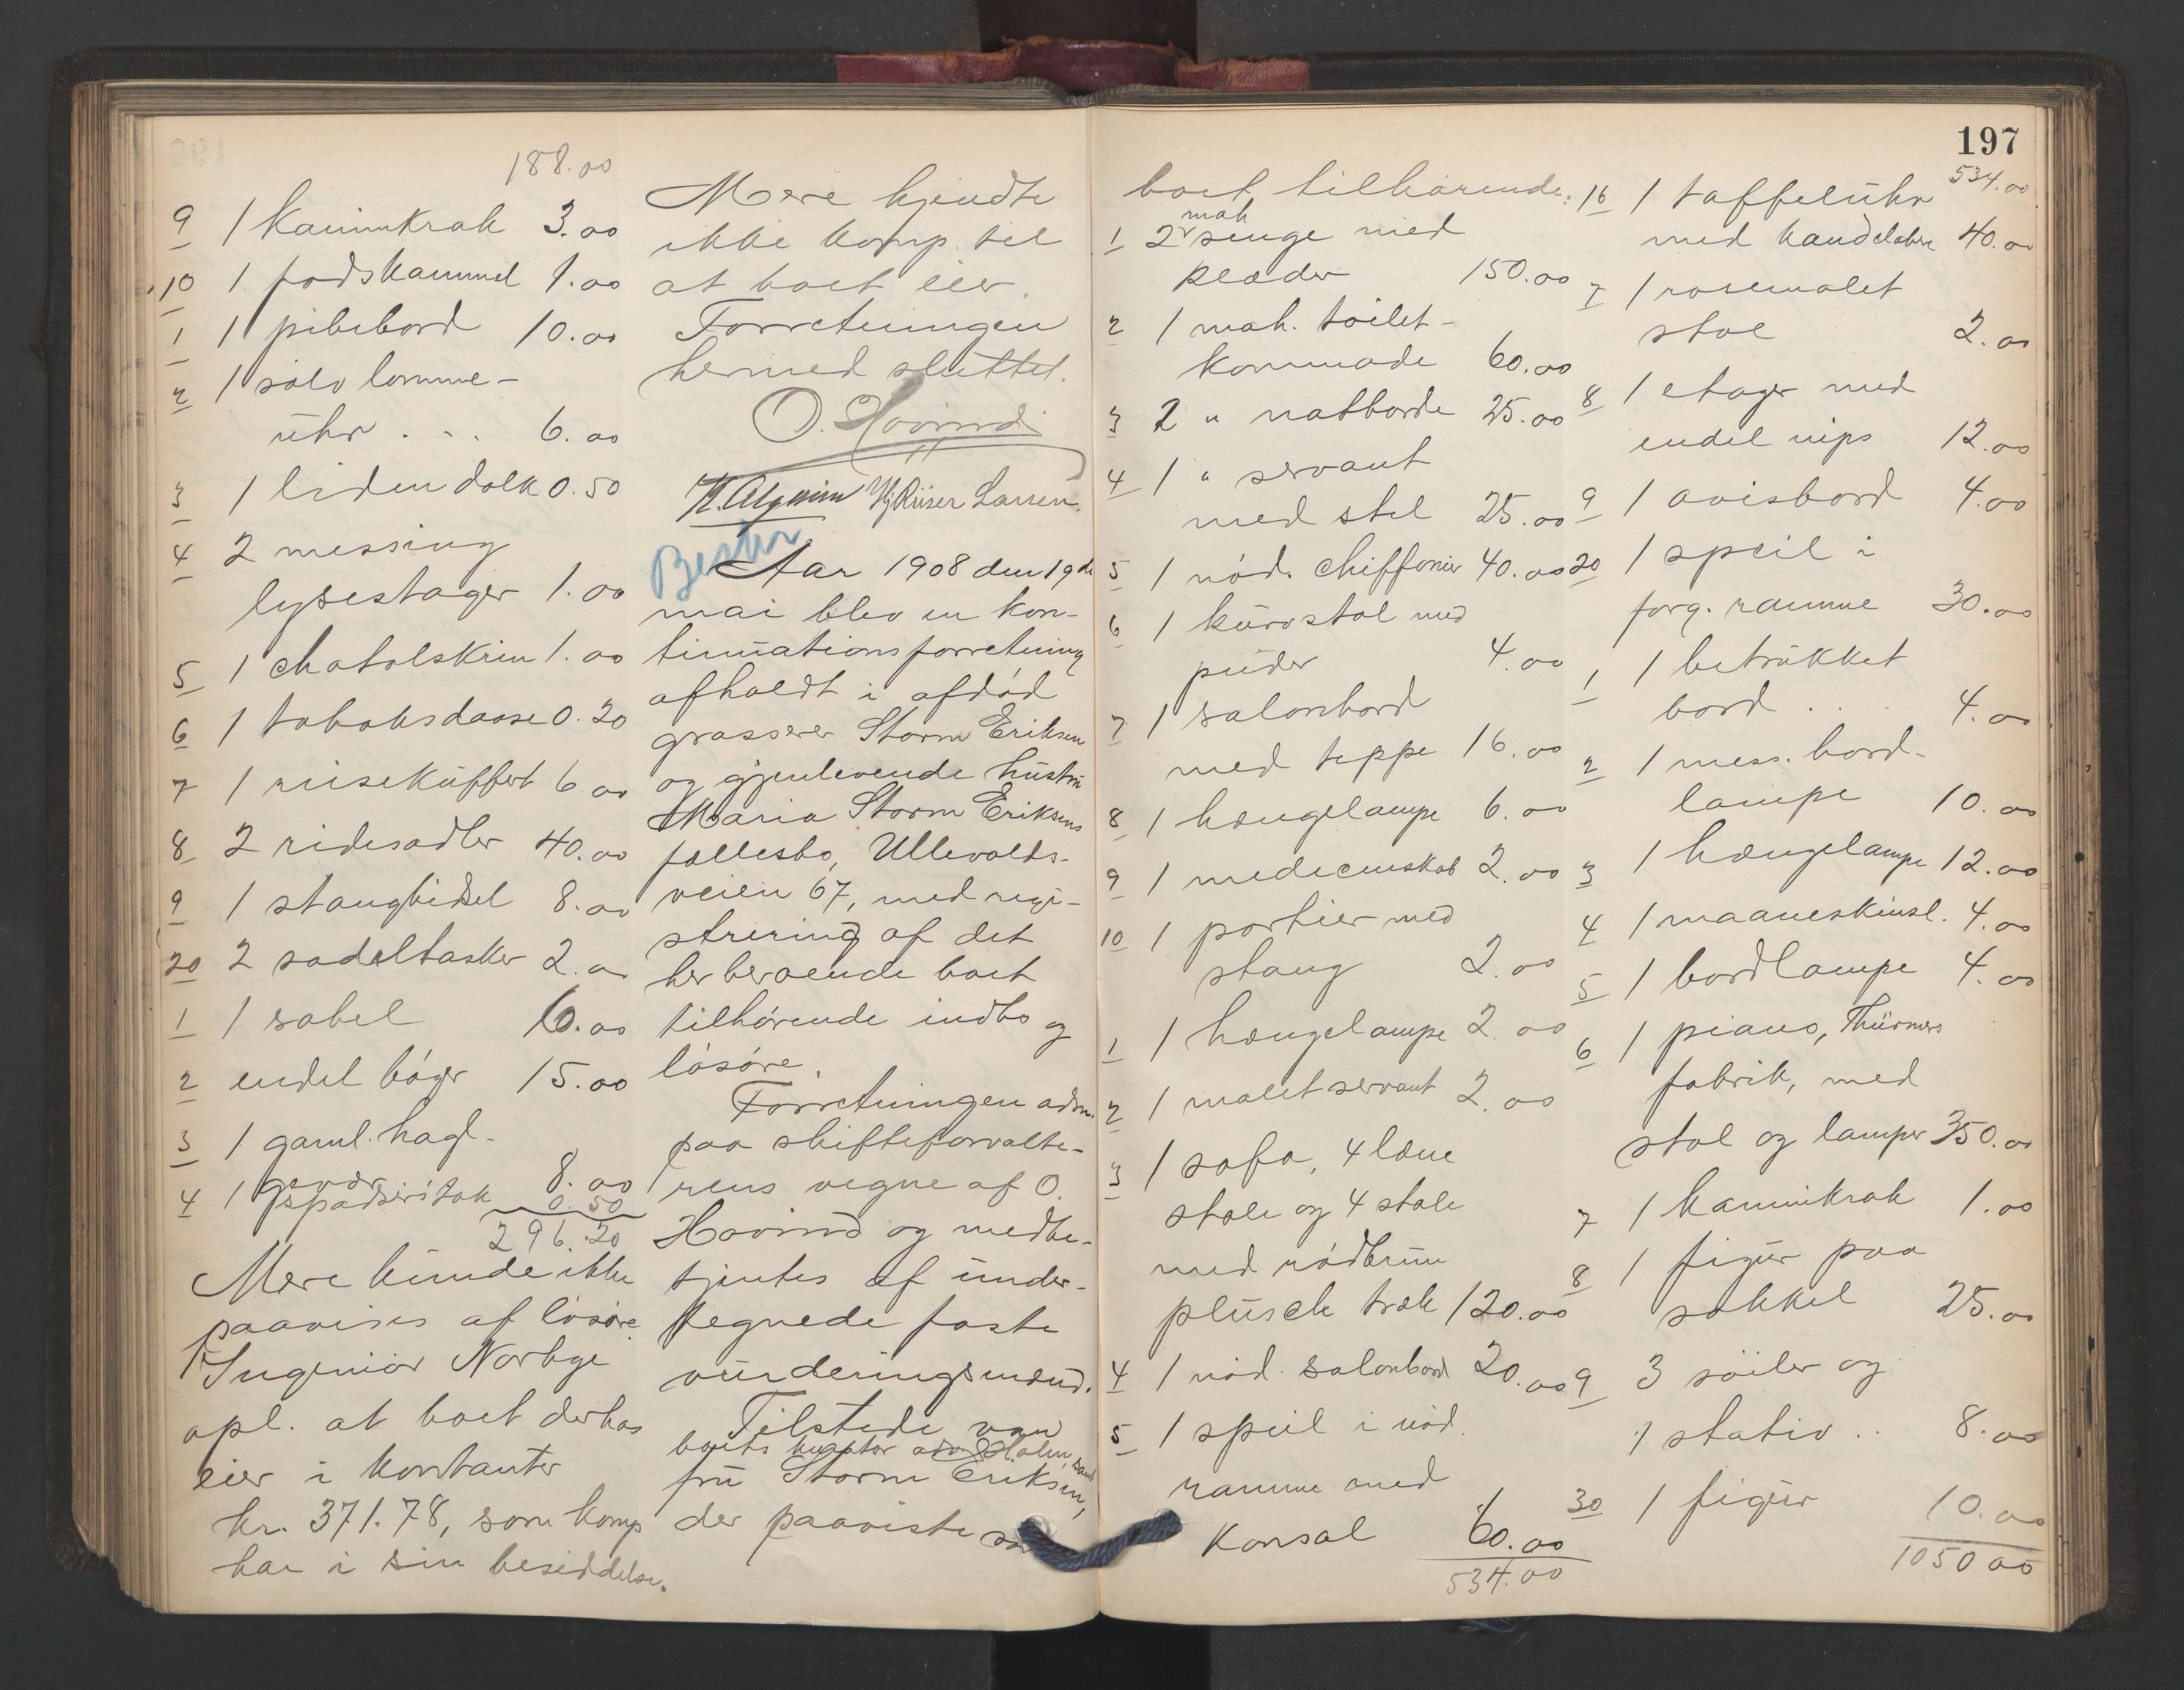 188.00
9 1 kaminkrak 3.00
10 1 fodskammel 1.00
1 1 pibebord 10.00
2 1 sølv lomme-
uhr . . . 6.00
3 1 liden dolk 0.50
4 2 messing
lysestager 1.00
5 1 chatolskrin 1.00
6 1 tobaksdaase 0.20
7 1 reisekuffert 6.00
8 2 ridesadler 40.00
9 1 stangbidsel 8.00
20 2 sadeltasker 2.00
1 1 sabel 6.00
2 endel bøger 15.00
3 1 gaml. hagl-
gevær 8.00
4 1 spadserstok 0.50
296.20
Mere kunde ikke
paavises af løsøre
Ingeniør Norbye
opl. at boet derhos
eier i kontanter
kr. 371.78, som komp
har i sin besiddelse.
Mere kjendte
ikke komp. til
at boet eier.
Forretningen
hermed sluttet.
O. Hovind
Hj. Riiser Larsen.
Aar 1908 den 19de
mai blev en kon-
tinuationsforretning
afholdt i afdød
grosserer Storm Eriksen
og gjenlevende hustru
Maria Storm Eriksens
fællesbo, Ullevolds-
veien 67, med regi-
strering af det
herberoende boet
tilhørende indbo og
løsøre.
Forretningen adm.
paa skifteforvalte-
rens vegne af O.
Hovind og medbe-
tjentes af under-
tegnede faste
vurderingsmænd.
Tilstede var
boets kurator adv. Holm, samt
fru Storm Eriksen,
der paaviste som
197
boet tilhørende:
1 2 mah senge med
klæder 150.00
2 1 mah. toilet-
kommode 60.00
3 2 " natborde 25.00
4 1 " servant
med stel 25.00
5 1 nød. chiffonier 40.00
6 1 kurvstol med
puder 4.00
7 1 salonbord
med teppe 16.00
8 1 hængelampe 6.00
9 1 medecinskab 2.00
10 1 portier med
stang 2.00
1 1 hængelampe 2.00
2 1 malet servant 2.00
3 1 sofa, 4 læne
stole og 4 stole
med rødbrun
plusch træk 120.00
4 1 nød. salonbord 20.00
5 1 speil i nød.
ramme med
Konsol 60.00
534.00
534.00
16 1 taffeluhr
med kandelabre 40.00
7 1 rosemalet
stol 2.00
8 1 etager med
endel nips 12.00
9 1 avisbord 4.00
20 1 speil i
forg. ramme 30.00
1 1 betrukket
bord . . 4.00
2 1 mess. bord-
lampe 10.00
3 1 hængelampe 12.00
4 1 maaneskinsl. 4.00
5 1 bordlampe 4.00
6 1 piano, Thürmers
fabrik, med
stol og lamper 350.00
7 1 kaminkrak 1.00
8 1 figur paa
sokkel 25.00
9 3 søiler og
1 stativ . . 8.00
30 1 figur 10.00
1050 00